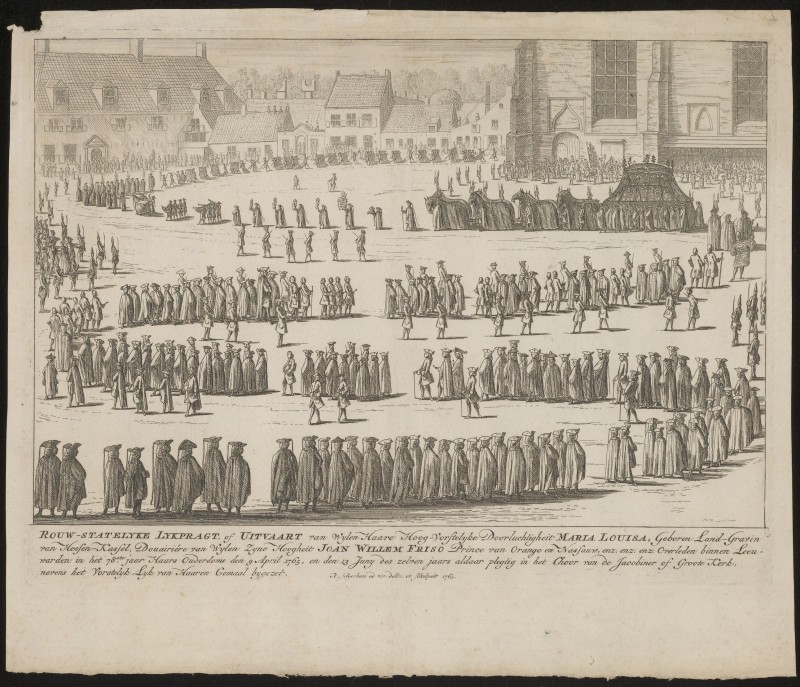 ROUW-STATELYKE LYKPRAGT, of UITVAART van Wylen Haare Hoog-Vorstelyke Doorluchtigheit MARIA LOUISA, Geboren Land-Gravin
van Hessen-Kassel, Douairiére van Wylen Zyne Hoogheit JOAN WILLEM FRISO Prince van Orange en Nassauw, enz. enz. enz. Overleden binnen Leeu-
warden in het 78ste jaer Haars Ouderdoms den 9 April 1765, en den 13 Juny des zelven jaars aldaar plegtig in het Choor van de Jacobiner of Groote Kerk,
nevens het Vorstelyk Lyk van Haaren Gemaal bygezet.
ad viv. delin. et sculpsit